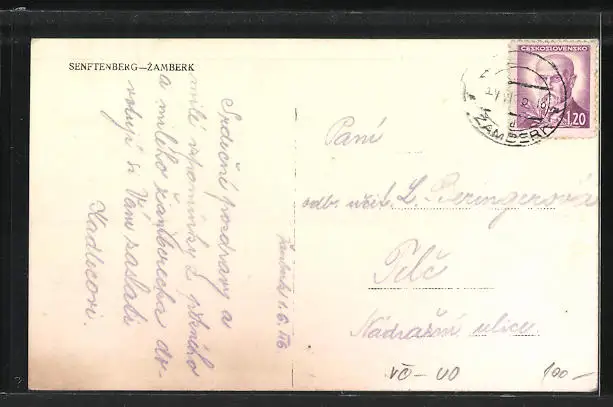 SENFTENBERG—ŽAMBERK
Srdečné pozdravy a
milé vzpomínky z pěkného
a milého Žamberecka do-
volují si Vám zaslati
Kadlecovi.
Žamberk 1. 6. 46
ČESKOSLOVENSKO
1.20
ŽAMBERK
Paní
odb. učit. L. Beringerová
Telč
Nádražní ulice
VČ - UO
100-